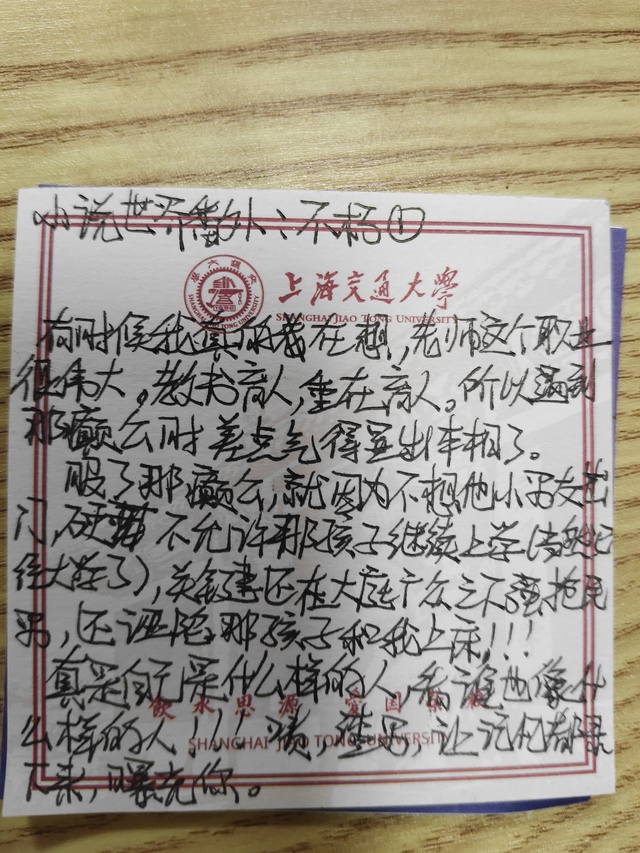 小说世界番外：不杨①
上海交通大学
SHANGHAI JIAO TONG UNIVERSITY
有时候我真的我在想，老师这个职业
很伟大。教书育人，重在育人。所以遇到
那癫公时差点气得显出本相了。
服了那癫公，就因为不想他小男友出
门，硬 不允许那孩子继续上学（当然已
经大学了），关键还在大庭广众之下强抢民
男，还诬陷那孩子和我上床！！！
真是自己是什么样的人，看谁也像什
饮水思源 爱国荣校
么样的人！！！渣，渣男，让记忆都
SHANGHAI JIAO TONG UNIVERSITY
下来，曝光你。